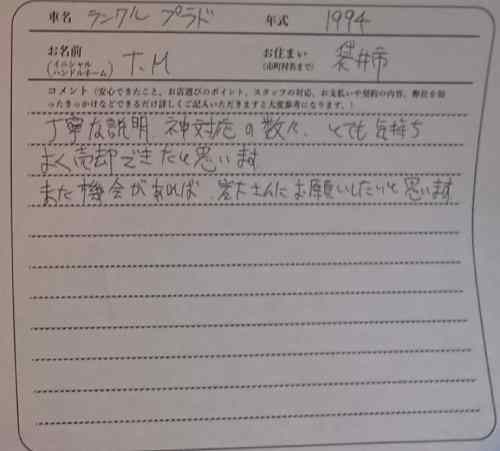 車名 ランクル プラド 年式 1994
お名前 (イニシャル ハンドルネーム) T.M お住まい (市町村名まで) 袋井市
コメント (安心できたこと、お店選びのポイント、スタッフの対応、お支払いや契約の内容、弊社を知
ったきっかけなどできるだけ詳しくご記入いただきますと大変参考になります。)
丁寧な説明 神対応の数々、とても気持ち
よく売却できたと思います
また機会があれば、岩下さんにお願いしたいと思います